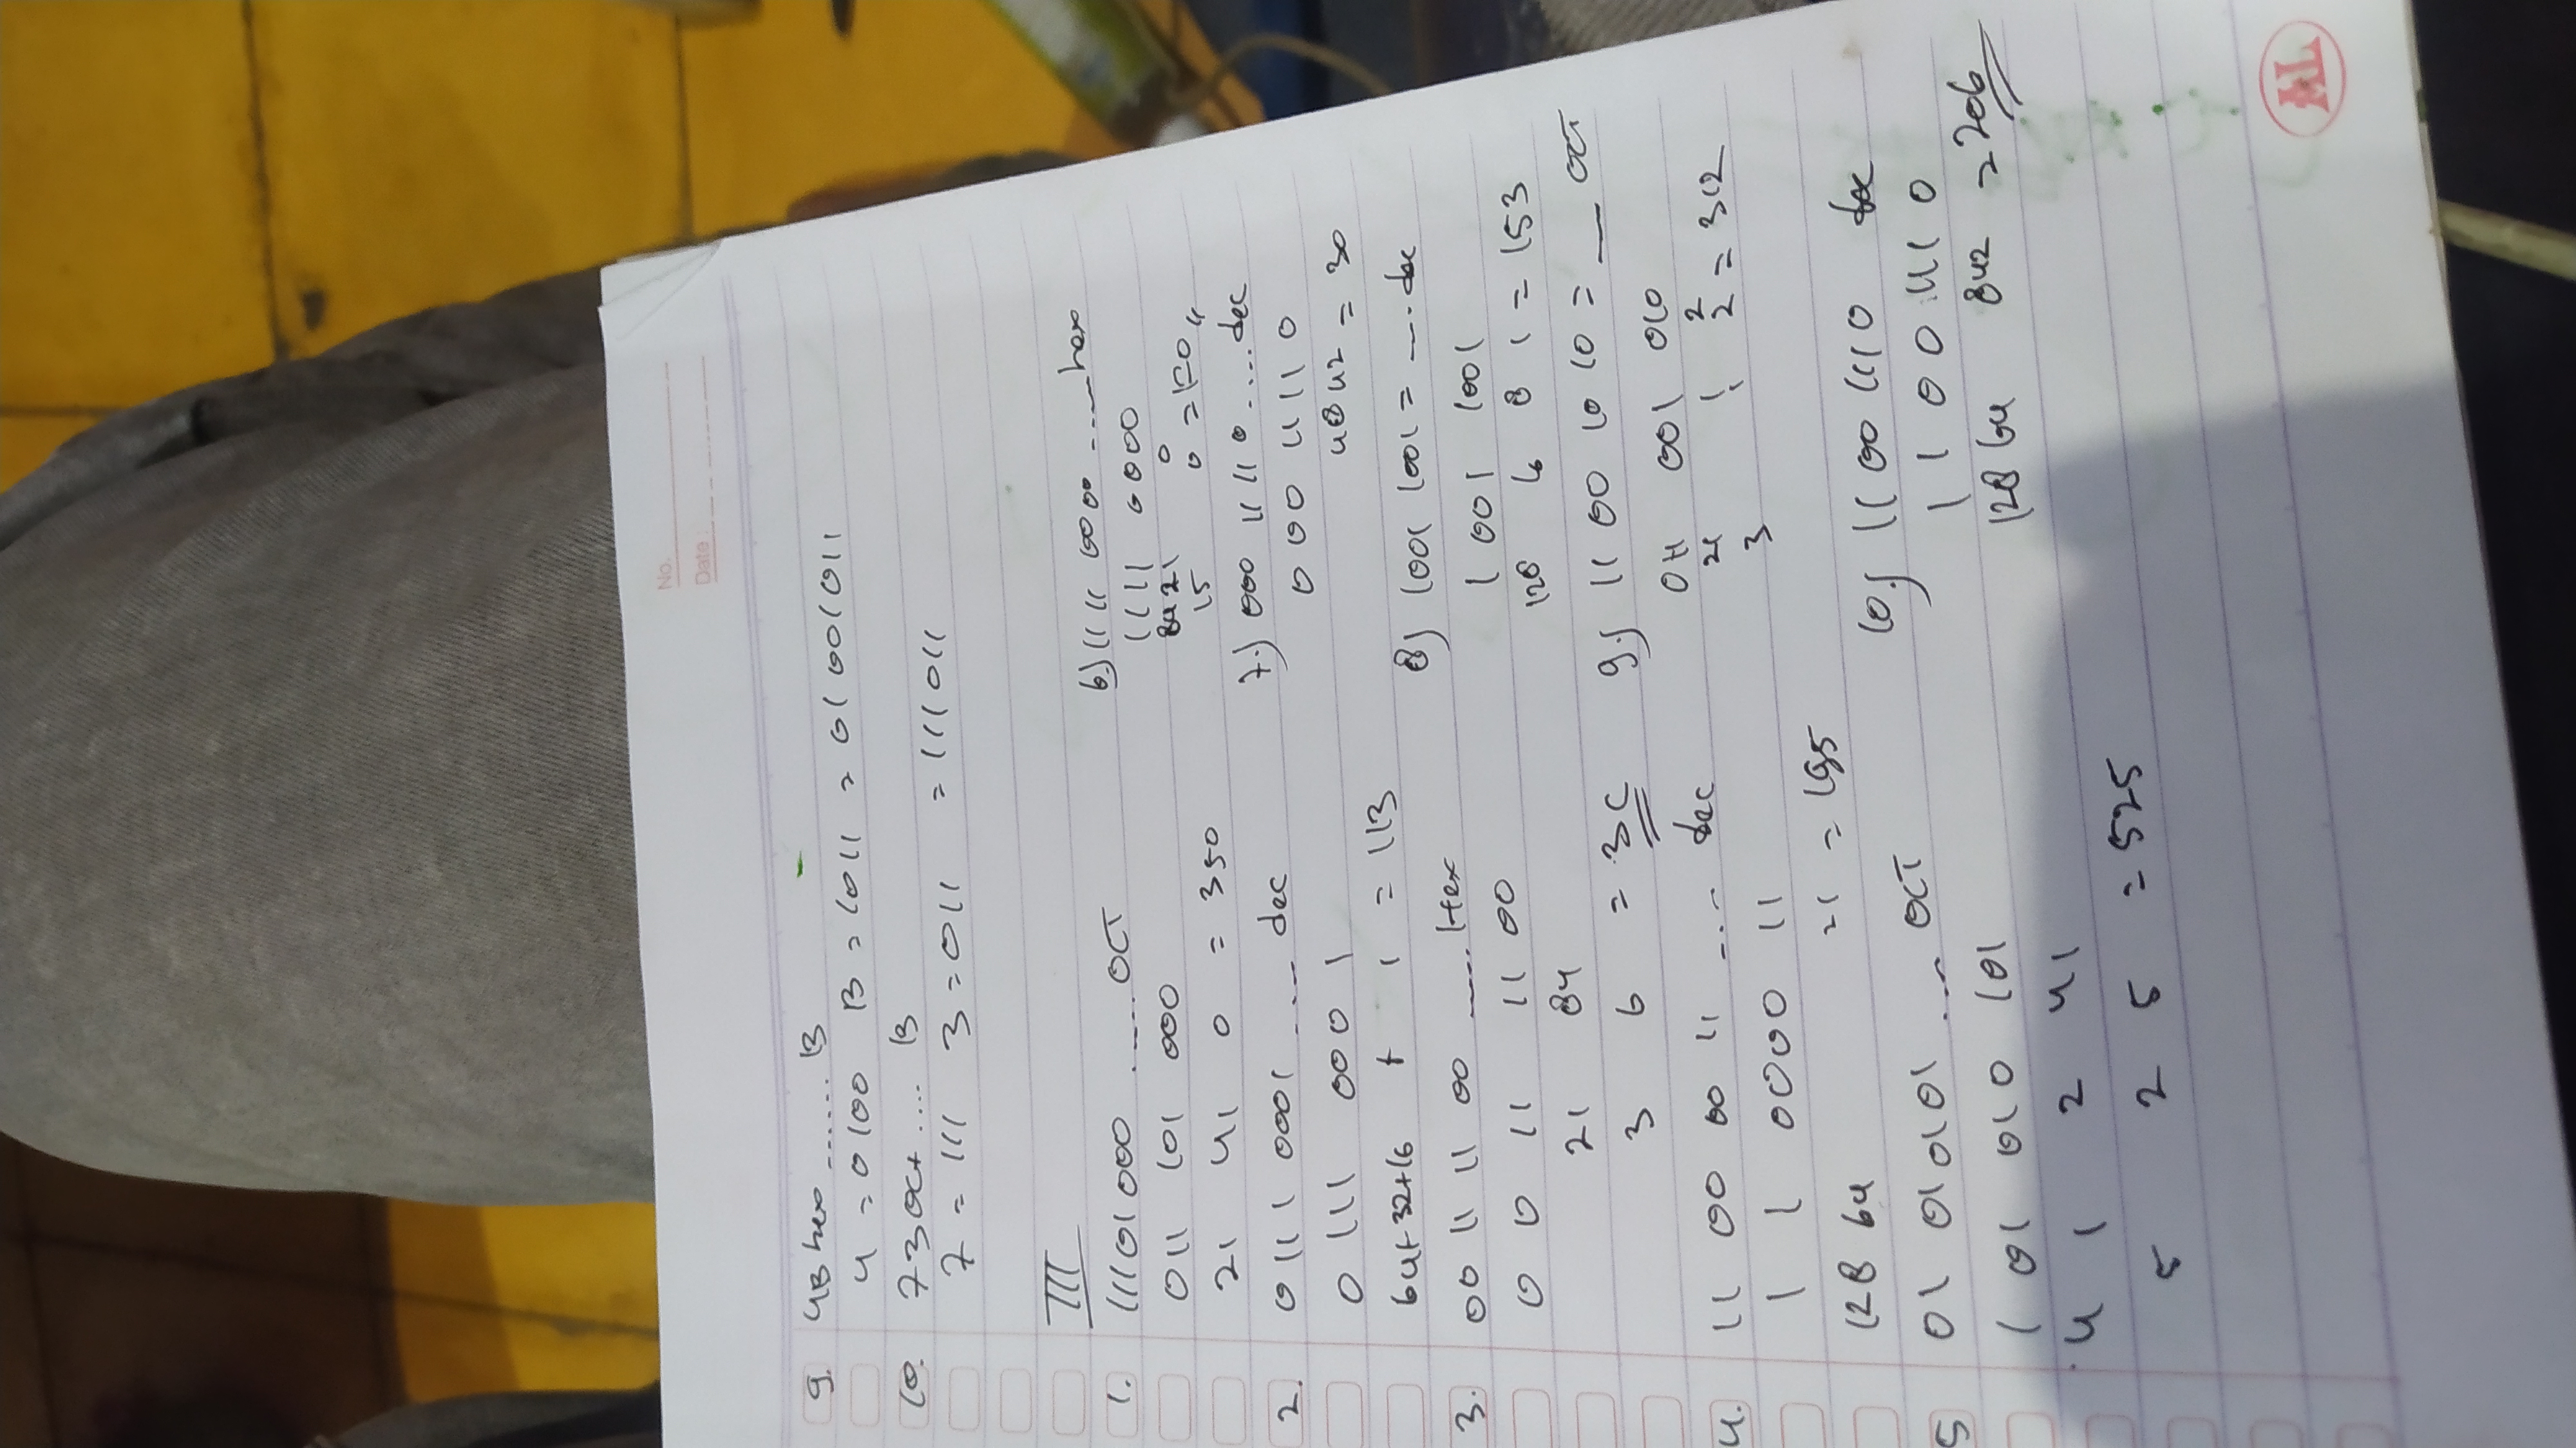 No.
Date :
9. 4B hex ...... B
4 = 0100 B = 1011 = 01001011
10. 73 Oct .... B
7 = 111 3 = 011 = 111011
III
1. 11101000 ...... OCT
011 101 000
21 41 0 = 350
2. 0111 0001 .... dec
0111 0001
64+32+16 + 1 = 113
3. 00 11 11 00 ...... Hex
0 0 11 11 00
21 84
3 6 = 3C
4. 11 00 00 11 .... dec
1 1 0000 11
128 64 21 = 195
5 01 01 01 01 .... OCT
1 01 010 101
4 1 2 41
5 2 5 = 525
6.) 11 11 0000 ...... hex
1111 0000
8421 0
15 0
7.) 000 11 11 0 .... dec
0 00 1111 0
842 = 30
8) 1001 1001 = .... dec
1 001 1001
128 8 1 = 153
9.) 11 00 10 10 = __ OCT
011 001 010
21 1 2
3 2 = 312
10.) 11 00 111 0 dec
1 1 0 0 111 0
128 64 842 = 206
AL